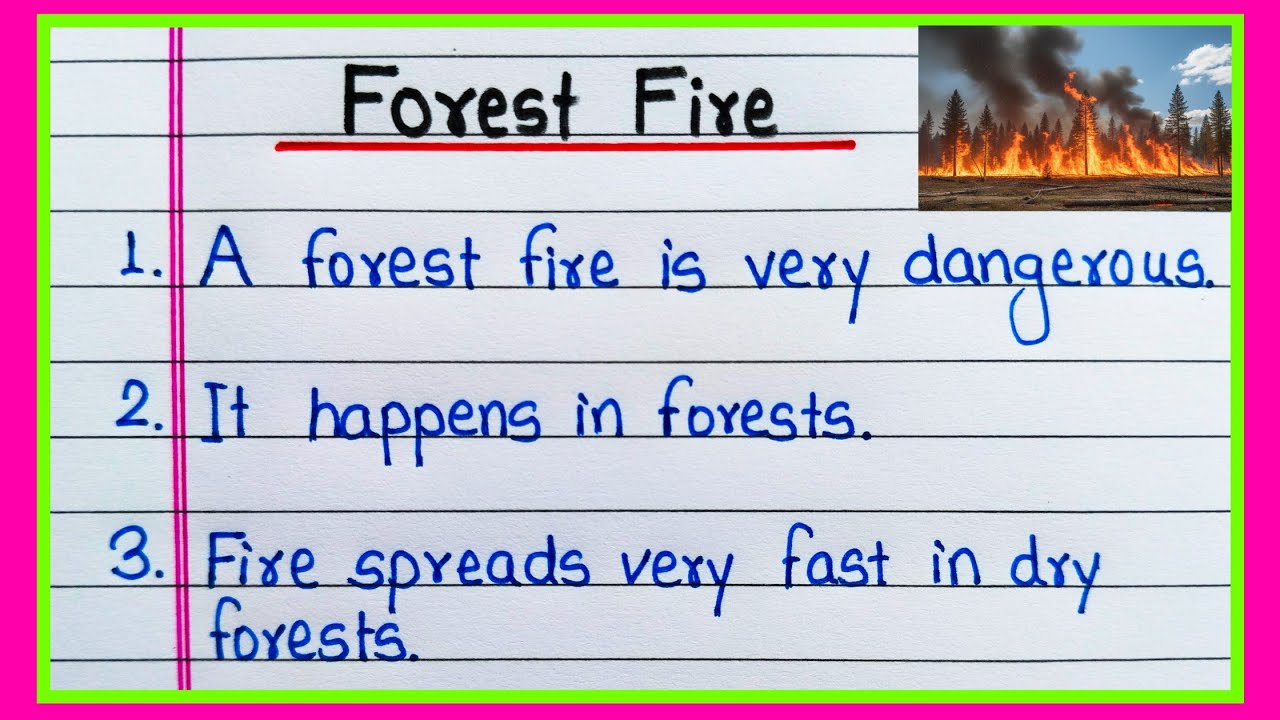 Forest Fire
1. A forest fire is very dangerous.
2. It happens in forests.
3. Fire spreads very fast in dry
forests.